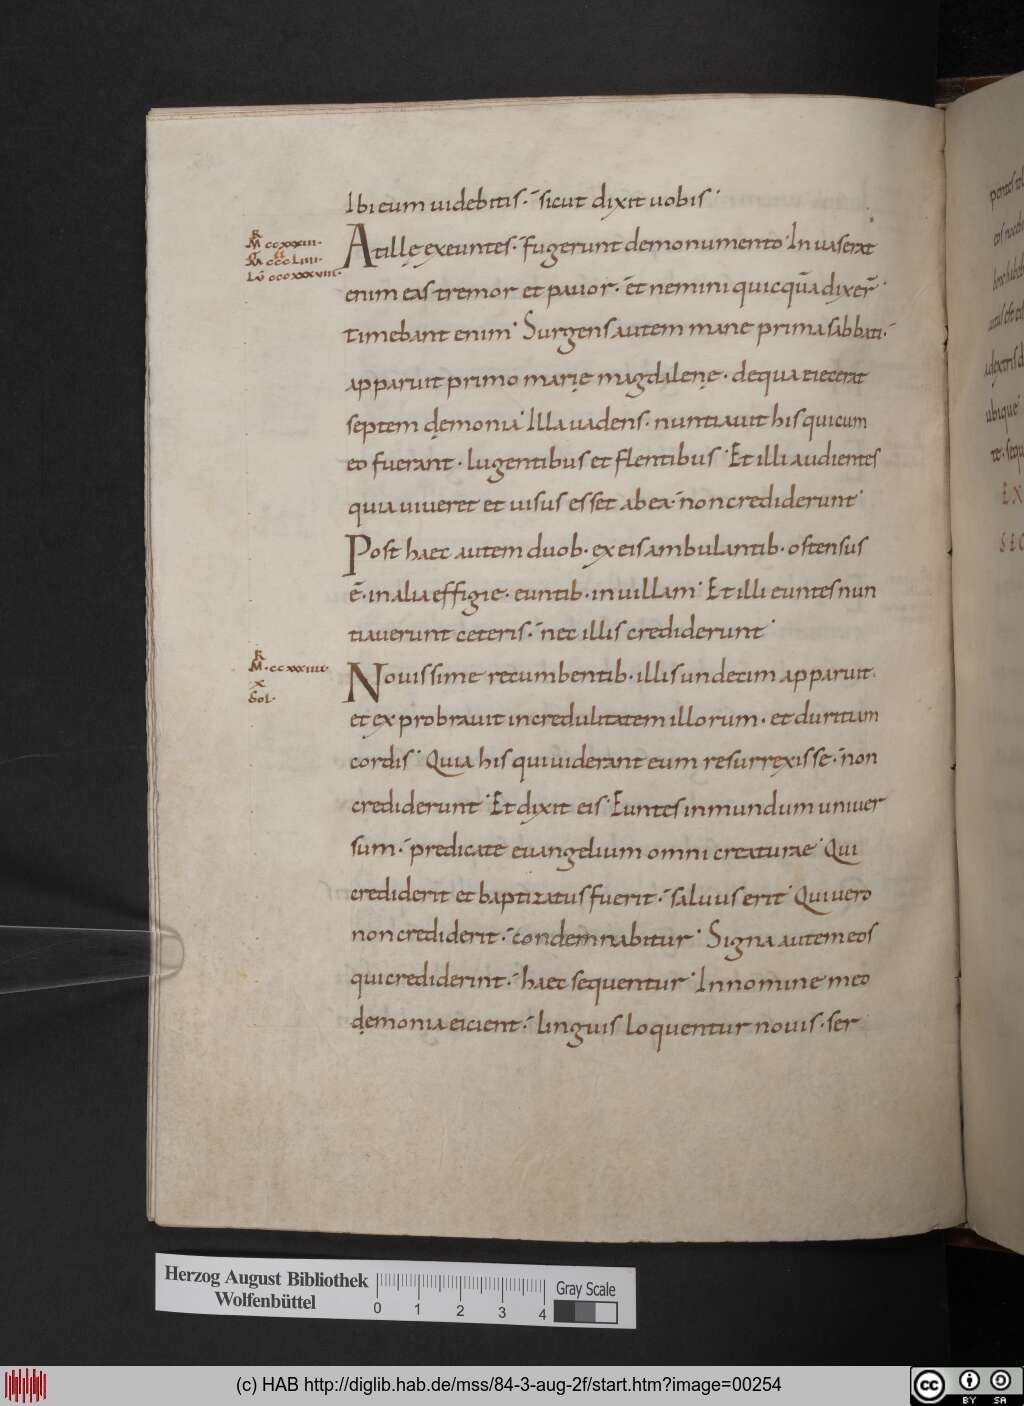 Ibi eum uidebitis· sicut dixit uobis·
R
M ccxxxiii·
a
M cccLiiii·
Lu cccxxxviii·
At illę exeuntes· fugerunt de monumento· Inuaserat
enim eas tremor et pauor· et nemini quicquā dixer̄·
timebant enim· Surgens autem mane prima sabbati·
apparuit primo marię magdalenę· de qua eiecerat
septem dęmonia· Illa uadens· nuntiauit his qui cum
eo fuerant· lugentibus et flentibus· Et illi audientes
quia uiueret et uisus esset ab ea· non crediderunt·
Post haec autem duob· ex eis ambulantib· ostensus
ē· in alia effigie· euntib· in uillam· Et illi euntes nun
tiauerunt ceteris· nec illis crediderunt·
R
M·ccxxxiiii·
x
Sol·
Nouissime recumbentib· illis undecim apparuit·
et exprobrauit incredulitatem illorum· et duritiam
cordis· Quia his qui uiderant eum resurrexisse· non
crediderunt· Et dixit eis· Euntes in mundum uniuer
sum· predicate euangelium omni creaturae· Qui
crediderit et baptizatus fuerit· saluus erit· Qui uero
non crediderit· condemnabitur· Signa autem eos
qui crediderint· haec sequentur· In nomine meo
dęmonia eicient· linguis loquentur nouis· ser
ubique·
Herzog August Bibliothek
Wolfenbüttel
0 1 2 3 4
Gray Scale
(c) HAB http://diglib.hab.de/mss/84-3-aug-2f/start.htm?image=00254
cc BY SA